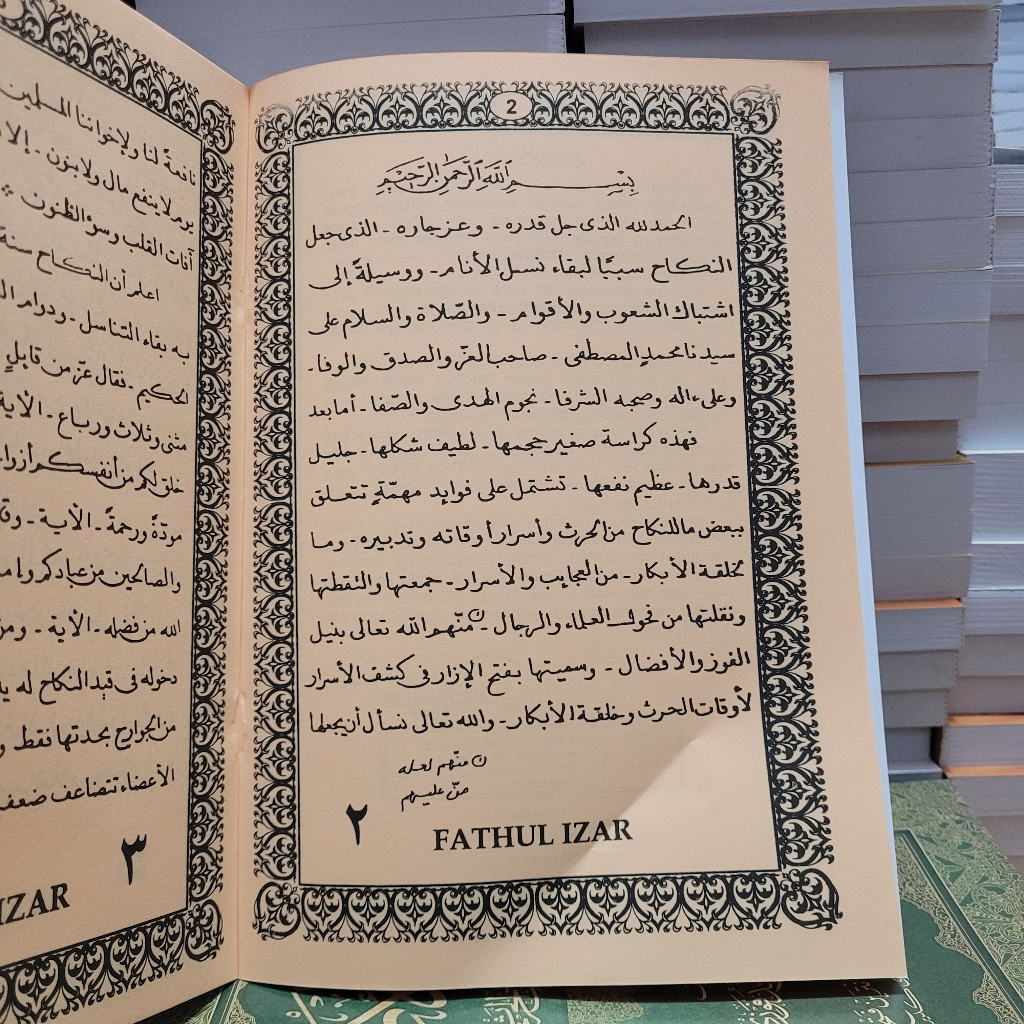 2
بِسْمِ اللَّهِ الرَّحْمٰنِ الرَّحِيْمِ
الحمد لله الذى جل قدره - وعز جاره - الذى جعل
النكاح سببًا لبقاء نسل الأنام - ووسيلةً إلى
اشتباك الشعوب والأقوام - والصّلاة والسلام على
سيدنا محمدٍ المصطفى - صاحب العزّ والصدق والوفا -
وعلىءاله وصحبه الشرفا - نجوم الهدى والصّفا - أما بعد
فهذه كراسة صغير حجمها - لطيف شكلها - جليل
قدرها - عظيم نفعها - تشتمل على فوايد مهمّةٍ تتعلق
ببعض ما للنكاح من الحرث وأسرار أوقاته وتدبيره - وما
لخلقة الأبكار - من العجايب والأسرار - جمعتها والتقطتها
ونقلتها من نحول العلماء والرجال - ن منّهم الله تعالى بنيل
الفوز والأفضال - وسميتها بفتح الإزار فى كشف الأسرار
لأوقات الحرث وخلقة الأبكار - والله تعالى نسأل أن يجعلها
ن منّهم لعله
منّ عليهم
٢
FATHUL IZAR
نافعةً لنا ولإخواننا المسلمين
يوم لا ينفع مال ولابنون - إلا
آفات القلب وسوءالظنون
اعلم أن النكاح سنة
به بقاء التناسل - ودوام
الحكيم - فقال عزّ من قايلٍ
مثنى وثلاث ورباع - الآية
خلق لكم من أنفسكم أزوا
مودّةً ورحمةً - الآية -
والصالحين من عبادكم وإما
الله من فضله - الآية - ومن
دخوله فى قيد النكاح له
من الجوارح بحدتها فقط
الأعضاء تتضاعف ضعف
٣
IZAR